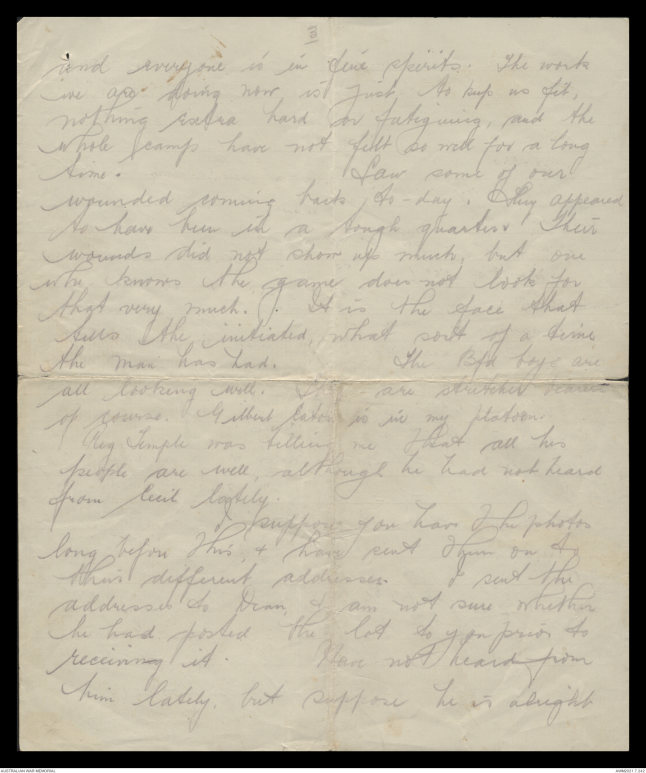 and everyone is in fine spirits. The work
we are doing now is just to keep us fit,
nothing extra hard or fatiguing, and the
whole camp have not felt so well for a long
time. Saw some of our
wounded coming back to-day. They appeared
to have been in a tough quarter. Their
wounds did not show up much, but one
who knows the game does not look for
that very much. It is the face that
tells the initiated what sort of a time
the man has had. The Bfd boys are
all looking well. are stretcher bearers
of course. Gilbert Eaton is in my platoon.
Reg Temple was telling me that all his
people are well, although he had not heard
from Cecil lately.
I suppose you have the photos
long before this, & have sent them on to
their different addresses. I sent the
addresses to Dean, I am not sure whether
he had posted the lot to you prior to
receiving it. Have not heard from
him lately, but suppose he is alright
AUSTRALIAN WAR MEMORIAL